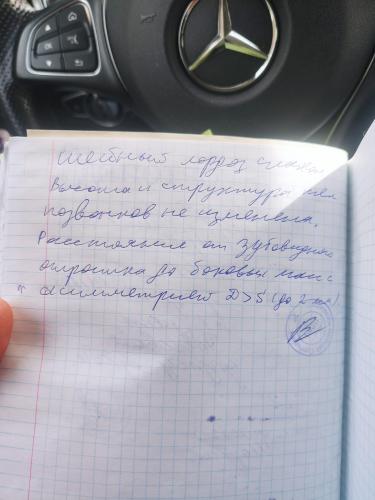 Шейный лордоз сглажен
Высота и структура тел
позвонков не изменена.
Расстояние от зубовидного
отростка до боковых масс
с асимметрией D>S (до 2 мм)